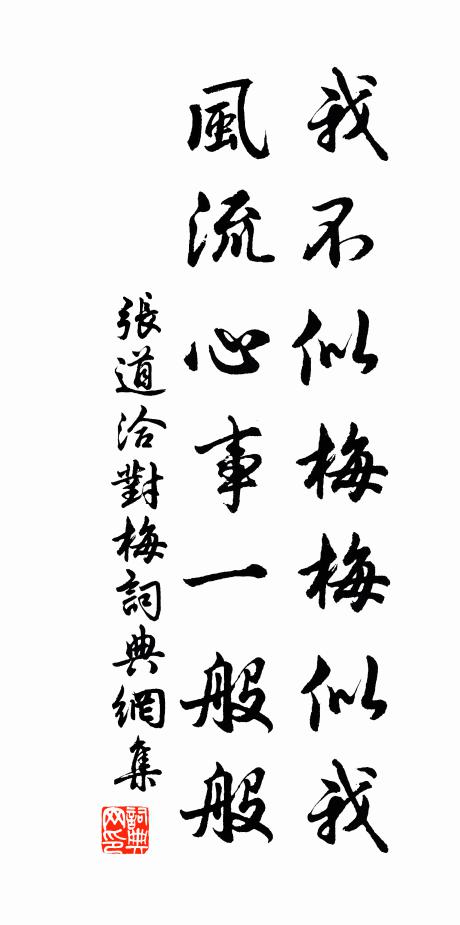 我不似梅梅似我
風流心事一般般
張道洽對梅詞典網集
詞典网印